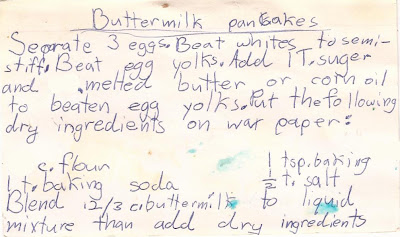 Buttermilk pancakes
Separate 3 eggs. Beat whites to semi-
stiff. Beat egg yolks. Add 1T. suger
and melted butter or corn oil
to beaten egg yolks. Put the following
dry ingredients on wax paper:
c. flour
1 tsp. baking
1 t. baking soda
1/2 t. salt
Blend 2/3 c. buttermilk to liquid
mixture than add dry ingredients